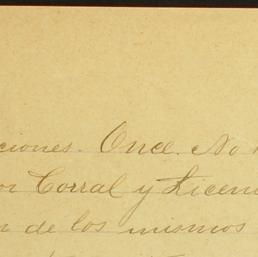 ciones. Once. No
or Corral y Licen
n de los mismos